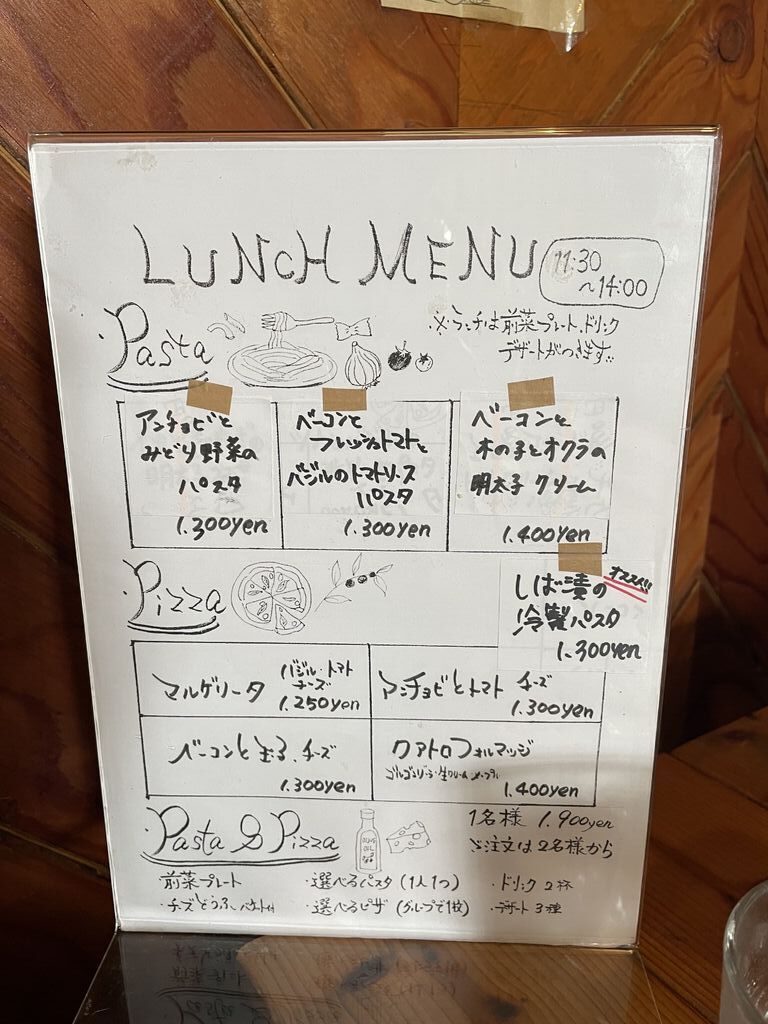 LUNCH MENU
11:30
～14:00
Pasta
※ランチは前菜プレート、ドリンク
デザートがつきます
アンチョビと
みどり野菜の
パスタ
1.300yen
ベーコンと
フレッシュトマトと
バジルのトマトソース
パスタ
1.300yen
ベーコンと
木の子とオクラの
明太子クリーム
1.400yen
Pizza
オススメ!!
しば漬の
冷製パスタ
1.300yen
マルゲリータ
バジル・トマト
チーズ
1.250yen
アンチョビとトマト チーズ
1.300yen
ベーコンと玉ネギ、チーズ
1.300yen
クアトロフォルマッジ
ゴルゴンゾーラ・生クリーム・メープル
1.400yen
Pasta & Pizza
OLIVE
OIL
1名様 1.900yen
※注文は2名様から
前菜プレート
・選べるパスタ (1人1つ)
・ドリンク2杯
・チーズどうふ、バケット付
・選べるピザ (グループで1枚)
・デザート3種